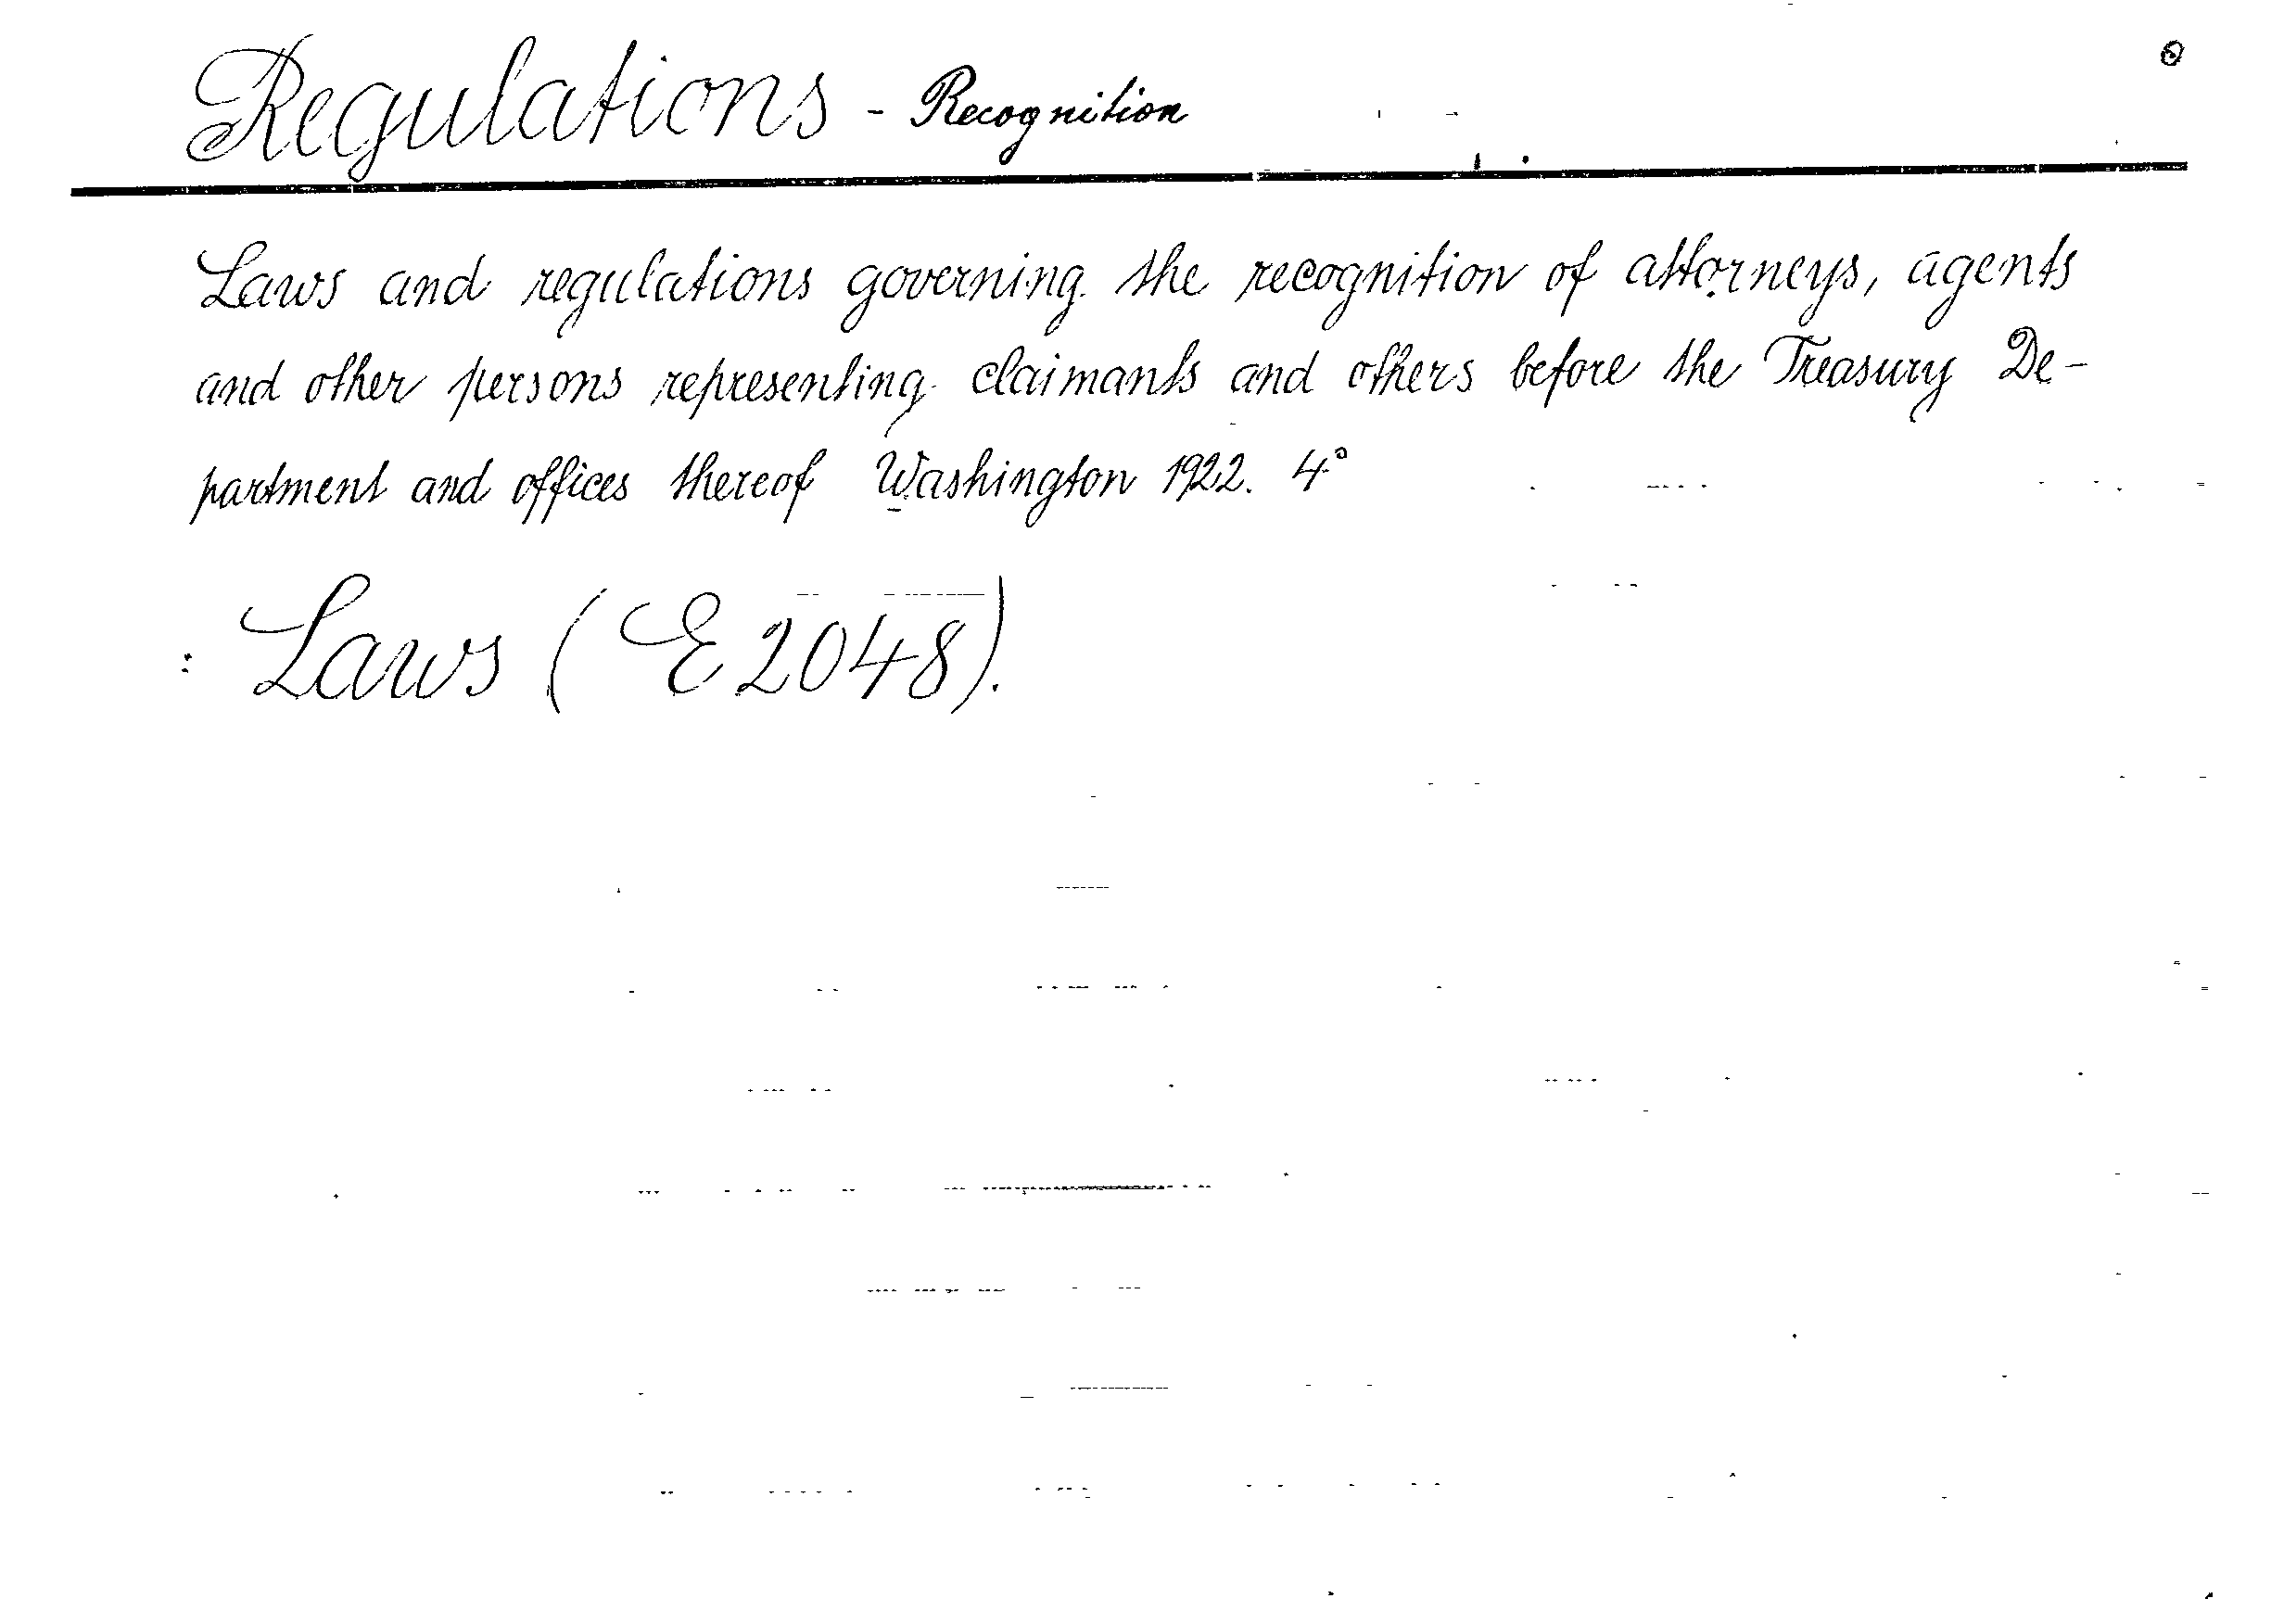 Regulations - Recognition
Laws and regulations governing the recognition of attorneys, agents
and other persons representing claimants and others before the Treasury De-
partment and offices thereof Washington 1922. 4°
: Laws (E 2048).